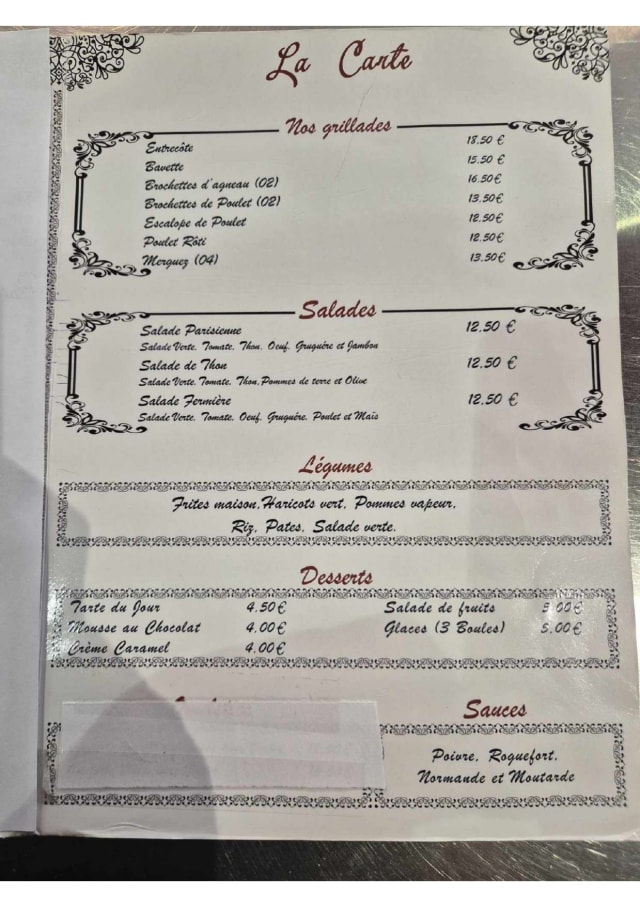 La Carte
Nos grillades
Entrecôte 18.50 €
Bavette 15.50 €
Brochettes d'agneau (02) 16.50€
Brochettes de Poulet (02) 13.50€
Escalope de Poulet 12.50€
Poulet Rôti 12.50€
Merguez (04) 13.50€
Salades
Salade Parisienne 12,50 €
Salade Verte, Tomate, Thon, Oeuf, Gruyère et Jambon
Salade de Thon 12,50 €
Salade Verte, Tomate, Thon,Pommes de terre et Olive
Salade Fermière 12,50 €
Salade Verte, Tomate, Oeuf, Gruyère, Poulet et Maïs
Légumes
Frites maison,Haricots vert, Pommes vapeur,
Riz, Pates, Salade verte.
Desserts
Tarte du Jour 4.50€ Salade de fruits 5.00€
Mousse au Chocolat 4.00€ Glaces (3 Boules) 5.00€
Crème Caramel 4.00€
Sauces
Poivre, Roquefort,
Normande et Moutarde